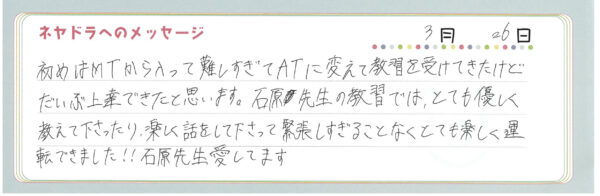 ネヤドラへのメッセージ 3月 26日
初めはMTから入って難しすぎてATに変えて教習を受けてきたけど
だいぶ上達できたと思います。石原先生の教習では、とても優しく
教えて下さったり、楽しく話をして下さって緊張しすぎることなくとても楽しく運
転できました!!石原先生愛してます